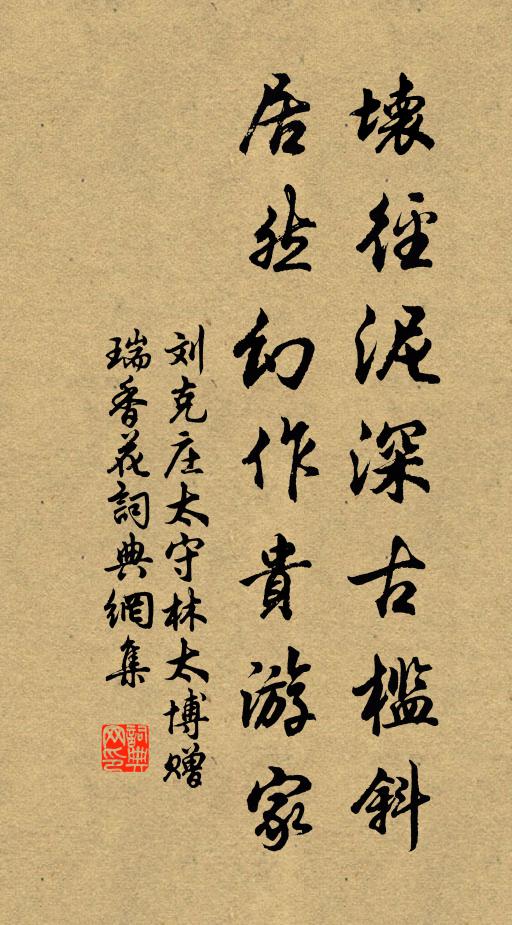 壊徑泥深古檻斜
居然幻作貴游家
刘克庄太守林太博赠
瑞香花詞典網集
詞典網印